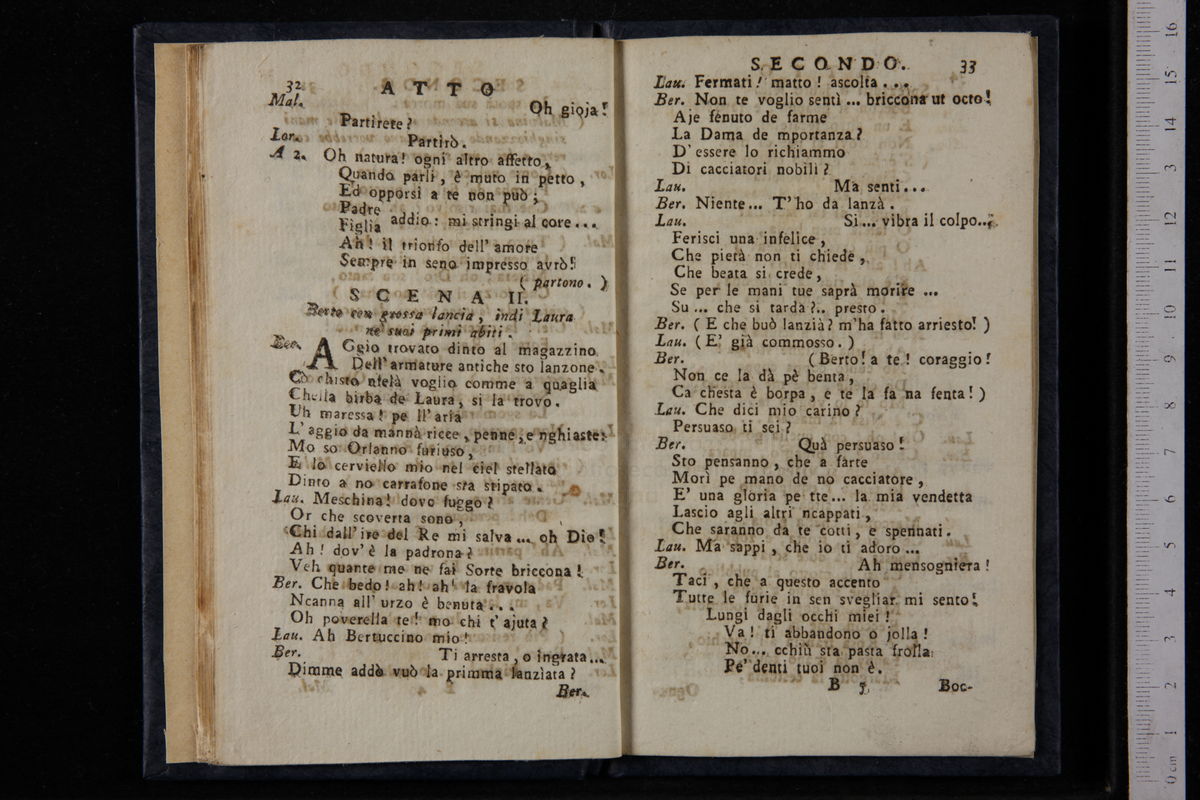 32 ATTO
Mal. Oh gioja!
Partirete?
Lor. Partirò.
A 2. Oh natura! ogni altro affetto,
Quando parli, è muto in petto,
Ed opporsi a te non può;
Padre
Figlia addio: mi stringi al core...
Ah! il trionfo dell' amore
Sempre in seno impresso avrò!
( partono. )
SCENA II.
Berto con grossa lancia, indi Laura
ne' suoi primi abiti.
Ber. AGgio trovato dinto al magazzino
Dell' armature antiche sto lanzone.
Cò chisto nfelà voglio comme a quaglia
Chella birba de Laura, si la trovo.
Uh maressa! pe ll' aria
L' aggio da mannà ricce, penne, e nghiaste:
Mo so Orlanno furiuso,
E lo cerviello mio nel ciel stellato
Dinto a no carrafone sta stipato.
Lau. Meschina! dove fuggo?
Or che scoverta sono,
Chi dall' ire del Re mi salva... oh Dio!
Ah! dov' è la padrona?
Veh quante me ne fai Sorte briccona!
Ber. Che bedo! ah! ah! la fravola
Ncanna all' urzo è benuta...
Oh poverella te! mo chi t' ajuta?
Lau. Ah Bertuccino mio!
Ber. Ti arresta, o ingrata...
Dimme addò vuò la primma lanziata?
Ber.
SECONDO. 33
Lau. Fermati! matto! ascolta...
Ber. Non te voglio sentì... briccona ut octo!
Aje fenuto de farme
La Dama de mportanza?
D' essere lo richiammo
Di cacciatori nobili?
Lau. Ma senti...
Ber. Niente... T' ho da lanzà.
Lau. Si... vibra il colpo...
Ferisci una infelice,
Che pietà non ti chiede,
Che beata si crede,
Se per le mani tue saprà morire...
Su... che si tarda?.. presto.
Ber. ( E che buò lanzià? m'ha fatto arriesto! )
Lau. ( E' già commosso. )
Ber. (Berto! a te! coraggio!
Non ce la dà pè benta,
Ca chesta è borpa, e te la fa na fenta! )
Lau. Che dici mio carino?
Persuaso ti sei?
Ber. Quà persuaso!
Sto pensanno, che a farte
Morì pe mano de no cacciatore,
E' una gloria pe tte... la mia vendetta
Lascio agli altri ncappati,
Che saranno da te cotti, e spennati.
Lau. Ma sappi, che io ti adoro...
Ber. Ah mensogniera!
Taci, che a questo accento
Tutte le furie in sen svegliar mi sento!
Lungi dagli occhi miei!
Va! ti abbandono o jolla!
No... cchiù sta pasta frolla
Pe' denti tuoi non è.
B 5 Boc-
16
15
14
13
12
11
10
9
8
7
6
5
4
3
2
1
0 cm